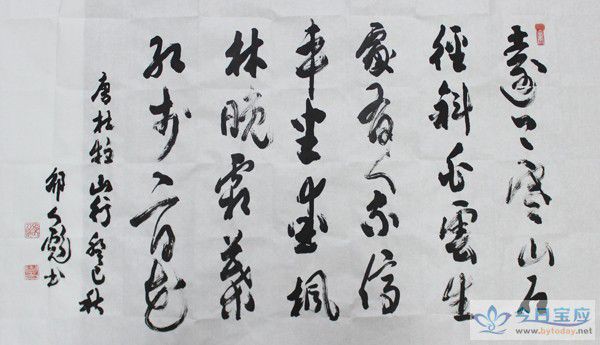 遠上寒山石
徑斜白雲生
處有人家停
車坐愛楓
林晚霜葉
紅於二月花
唐杜牧山行癸巳秋
书
今日宝应
www.bytoday.net